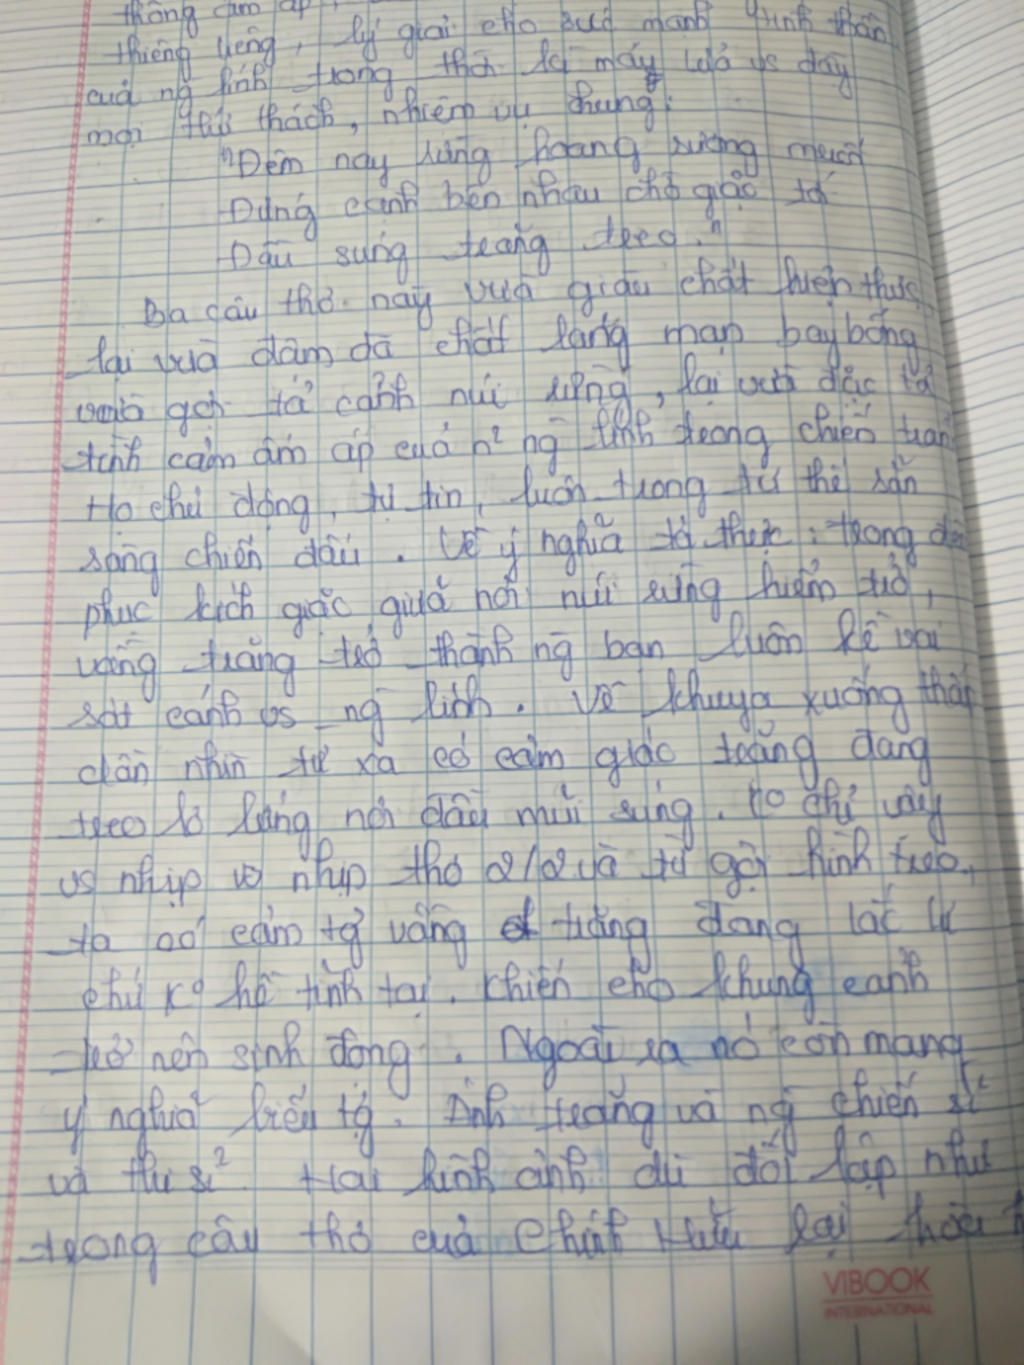 thống cảm ấp
thiêng liêng, lý giải cho sức mạnh tinh thần
của ng lính trong thời kì máy lửa vs đầy
mọi thử thách, nhiệm vụ chung:
"Đêm nay rừng hoang sương muối
Đứng cạnh bên nhau chờ giặc tới
Đầu súng trăng treo."
Ba câu thơ này vừa giàu chất hiện thực,
lại vừa đậm đà chất lãng mạn bay bổng
vừa gợi tả cảnh núi rừng, lại vừa đặc tả
tình cảm ấm áp của n² ng lính trong chiến tran
Họ chủ động, tự tin, luôn trong tư thế sẵn
sàng chiến đấu. Về ý nghĩa tả thực: trong đê
phục kích giặc, giữa nơi núi rừng hiểm trở,
vầng trăng trở thành ng bạn luôn kề vai
sát cánh vs ng lính. Về khuya xuống thấp
dần, nhìn từ xa có cảm giác trăng đang
treo lơ lửng nơi đầu mũi súng. K⁰ chỉ vậy
vs nhịp vớ nhịp thơ 2/2 và từ gợi hình treo,
ta có cảm tg vầng trăng đang lắc lư
chứ k⁰ hề tĩnh tại. Khiến cho khung cảnh
trở nên sinh động. Ngoài ra nó còn mang
ý nghĩa biểu tg. Ánh trăng và ng chiến sĩ
và thi sĩ. Hai hình ảnh dù đối lập như
trong câu thơ của Chính Hữu lại hòa h
VIBOOK
INTERNATIONAL